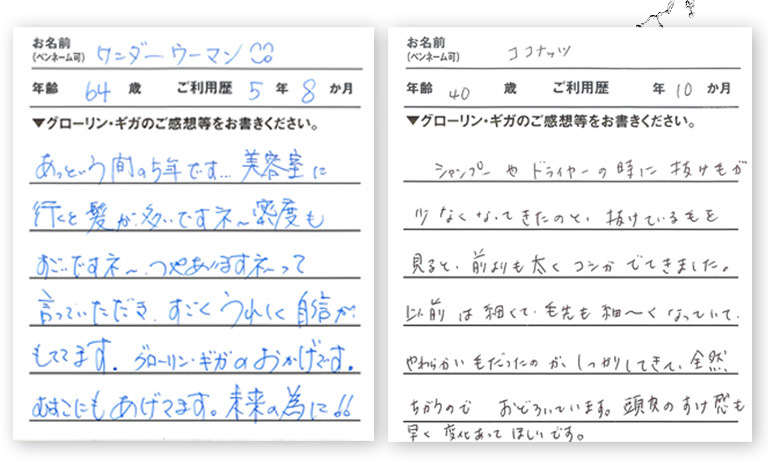 お名前
(ペンネーム可) ワンダーウーマン
年齢 64 歳 ご利用歴 5 年 8 か月
▼グローリン・ギガのご感想等をお書きください。
あっという間の5年です…美容室に
行くと髪が多いですネ〜密度も
すごいですネ〜、つやありますネ〜って
言っていただき、すごくうれしく自信が
もててます。グローリン・ギガのおかげです。
むすこにもあげてます。未来の為に!!
お名前
(ペンネーム可) ココナッツ
年齢 40 歳 ご利用歴 年 10 か月
▼グローリン・ギガのご感想等をお書きください。
シャンプーやドライヤーの時に抜け毛が
少なくなってきたのと、抜けている毛を
見ると、前よりも太くコシがでてきました。
以前は細くて、毛先も細〜くなっていて、
やわらかい毛だったのが、しっかりしてきて、全然
ちがうので おどろいています。頭皮のすけ感も
早く変化あってほしいです。